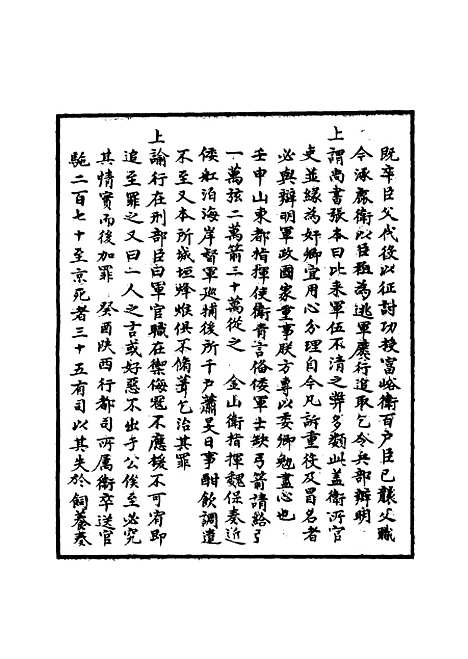 既卒臣父代役以征討功授富峪衛百户臣已襲父職
今涿鹿衛以臣祖為逃軍屢行追取乞令兵部辯明
上謂尚書張本曰比来軍伍不清之弊多類此盖衛所官
吏並緣為奸卿宜用心分理自今凡訴重役及冒名者
必與辯明軍政國家重事朕方專以委卿勉盡心也
壬申山東都指揮使衛青言俻倭軍士缺弓箭請給弓
一萬弦二萬箭三十萬從之　金山衛指揮魏保奏近
倭舡泊海岸督軍巡捕後所千户蕭旻日事酣飲調遣
不至又本所城垣烽堠俱不脩葺乞治其罪
上諭行在刑部臣曰軍官職在禦侮冦不應援不可宥即
追至罪之又曰一人之言或好惡不出于公俟至必究
其情實而後加罪　癸酉陕西行都司所属衛卒送官
駞二百七十至京死者三十五有司以其失於飼養奏